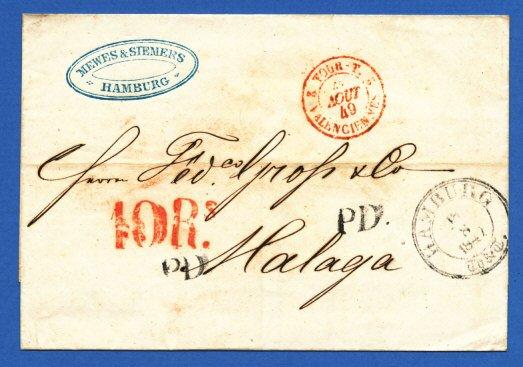 MEWES & SIEMERS
HAMBURG
2 TOUR-T. 2
AOUT
49
VALENCIENNES
Herrn Fed.co Gross & Co
10R.s
PD
PD
Malaga
HAMBURG